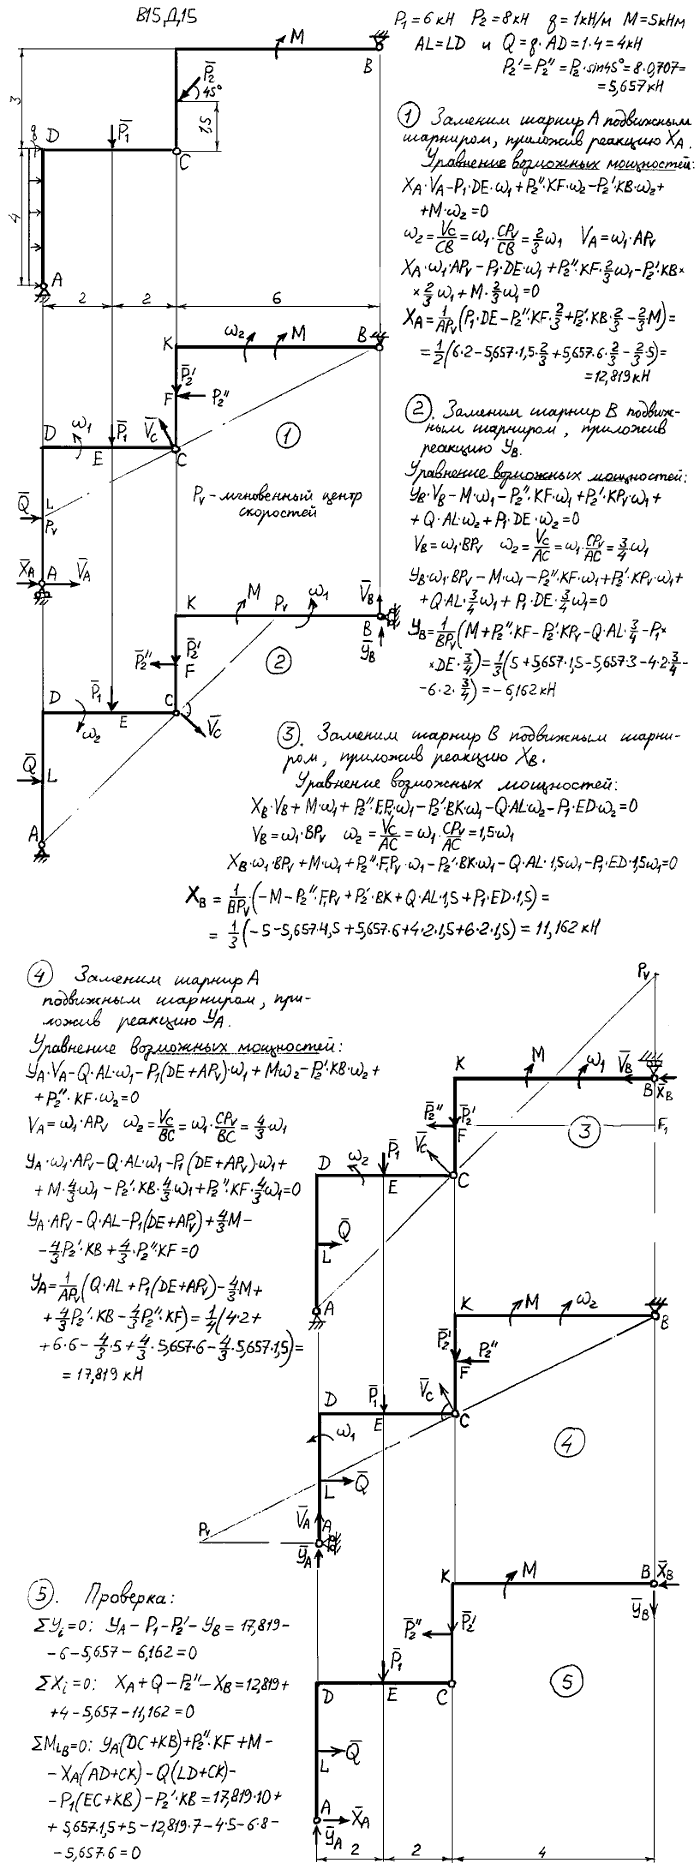 В15,Д15
P₁=6кН P₂=8кН q=1кН/м M=5кНм
AL=LD и Q=q·AD=1·4=4кН
P₂'=P₂''=P₂·sin45°=8·0,707=
=5,657кН
M
B
P̅₂
45°
1,5
3
q
D
P̅₁
C
4
A
2 2 6
① Заменим шарнир A подвижным
шарниром, приложив реакцию X_A.
Уравнение возможных мощностей:
X_A·V_A-P₁·DE·ω₁+P₂''·KF·ω₂-P₂'·KB·ω₂+
+M·ω₂=0
ω₂=V_C/CB=ω₁·CP_V/CB=2/3ω₁ V_A=ω₁·AP_V
X_A·ω₁·AP_V-P₁·DE·ω₁+P₂''·KF·2/3ω₁-P₂'·KB×
×2/3ω₁+M·2/3ω₁=0
X_A=1/AP_V(P₁·DE-P₂''·KF·2/3+P₂'·KB·2/3-2/3·M)=
=1/2(6·2-5,657·1,5·2/3+5,657·6·2/3-2/3·5)=
=12,819кН
K ω₂ M B
P̅₂'
F P₂''
D ω₁ P̅₁ V̅_C
E C
①
Q̅ L
P_V
P_V - мгновенный центр
скоростей
X̅_A A V̅_A
② . Заменим шарнир B подвиж-
ным шарниром, приложив
реакцию Y_B.
Уравнение возможных мощностей:
Y_B·V_B-M·ω₁-P₂''·KF·ω₁+P₂'·KP_V·ω₁+
+Q·AL·ω₂+P₁·DE·ω₂=0
V_B=ω₁·BP_V ω₂=V_C/AC=ω₁·CP_V/AC=3/4ω₁
Y_B·ω₁·BP_V-M·ω₁-P₂''·KF·ω₁+P₂'·KP_V·ω₁+
+Q·AL·3/4ω₁+P₁·DE·3/4ω₁=0
Y_B=1/BP_V(M+P₂''·KF-P₂'·KP_V-Q·AL·3/4-P₁×
×DE·3/4)=1/3(5+5,657·1,5-5,657·3-4·2·3/4-
-6·2·3/4)=-6,162кН
K M P_V ω₁ V̅_B
B
Y̅_B
P̅₂'' P̅₂'
F
②
D P̅₁ E C
ω₂ V̅_C
Q̅ L
A
③. Заменим шарнир B подвижным шарни-
ром, приложив реакцию X_B.
Уравнение возможных мощностей:
X_B·V_B+M·ω₁+P₂''·F₁P_V·ω₁-P₂'·BK·ω₁-Q·AL·ω₂-P₁·ED·ω₂=0
V_B=ω₁·BP_V ω₂=V_C/AC=ω₁·CP_V/AC=1,5ω₁
X_B·ω₁·BP_V+M·ω₁+P₂''·F₁P_V·ω₁-P₂'·BK·ω₁-Q·AL·1,5ω₁-P₁·ED·1,5ω₁=0
X_B=1/BP_V·(-M-P₂''·F₁P_V+P₂'·BK+Q·AL·1,5+P₁·ED·1,5)=
=1/3(-5-5,657·4,5+5,657·6+4·2·1,5+6·2·1,5)=11,162кН
④ Заменим шарнир A
подвижным шарниром, при-
ложив реакцию Y_A.
Уравнение возможных мощностей:
Y_A·V_A-Q·AL·ω₁-P₁(DE+AP_V)·ω₁+Mω₂-P₂'·KB·ω₂+
+P₂''·KF·ω₂=0
V_A=ω₁·AP_V ω₂=V_C/BC=ω₁·CP_V/BC=4/3ω₁
Y_A·ω₁·AP_V-Q·AL·ω₁-P₁(DE+AP_V)·ω₁+
+M·4/3ω₁-P₂'·KB·4/3ω₁+P₂''·KF·4/3ω₁=0
Y_A·AP_V-Q·AL-P₁(DE+AP_V)+4/3M-
-4/3P₂'·KB+4/3·P₂''KF=0
Y_A=1/AP_V(Q·AL+P₁(DE+AP_V)-4/3M+
+4/3P₂'·KB-4/3P₂''·KF)=1/4(4·2+
+6·6-4/3·5+4/3·5,657·6-4/3·5,657·1,5)=
=17,819кН
P_V
K M ω₁ V̅_B
B X̅_B
P̅₂'' P̅₂'
F F₁
③
D ω₂ P̅₁ V̅_C
E C
Q̅
L
A
K M ω₂
B
P̅₂' P₂''
F
D P̅₁ V̅_C
E C
ω₁
④
L Q̅
P_V V̅_A A
Y̅_A
⑤. Проверка:
ΣY_i=0: Y_A-P₁-P₂'-Y_B=17,819-
-6-5,657-6,162=0
ΣX_i=0: X_A+Q-P₂''-X_B=12,819+
+4-5,657-11,162=0
ΣM_iB=0: Y_A(DC+KB)+P₂''·KF+M-
-X_A(AD+CK)-Q(LD+CK)-
-P₁(EC+KB)-P₂'·KB=17,819·10+
+5,657·1,5+5-12,819·7-4·5-6·8-
-5,657·6=0
K M B X̅_B
Y̅_B
P̅₂'' P̅₂'
F
P̅₁
D E C
⑤
L Q̅
A X̅_A
Y̅_A
2 2 4